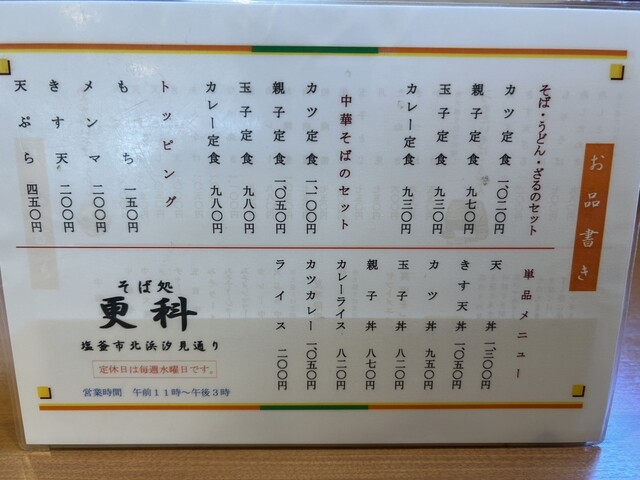 お品書き
そば・うどん・ざるのセット
カツ定食 一、〇二〇円
親子定食 九七〇円
玉子定食 九三〇円
カレー定食 九三〇円
中華そばのセット
カツ定食 一、一〇〇円
親子定食 一、〇五〇円
玉子定食 九八〇円
カレー定食 九八〇円
トッピング
もち 一五〇円
メンマ 二〇〇円
きす天 二〇〇円
天ぷら 四五〇円
単品メニュー
天丼 一、三〇〇円
きす天丼 一、〇五〇円
カツ丼 九五〇円
玉子丼 八二〇円
親子丼 八七〇円
カレーライス 八二〇円
カツカレー 一、〇五〇円
ライス 二〇〇円
そば処
更科
塩釜市北浜汐見通り
定休日は毎週水曜日です。
営業時間 午前11時～午後3時